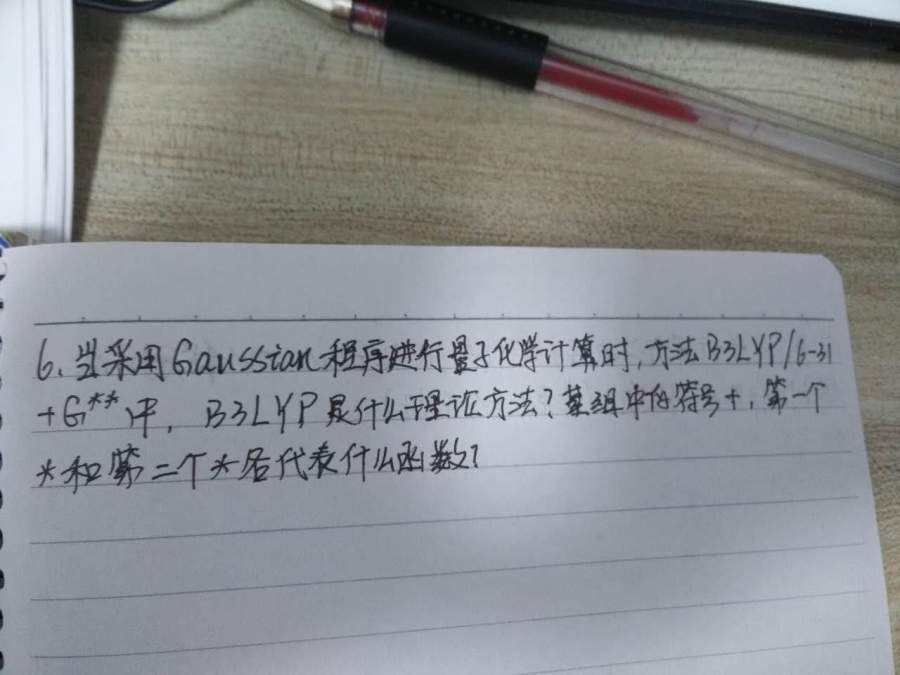 6、当采用Gaussian程序进行量子化学计算时,方法B3LYP/6-31
+G**中，B3LYP是什么理论方法?基组中的符号+,第一个
*和第二个*各代表什么函数?